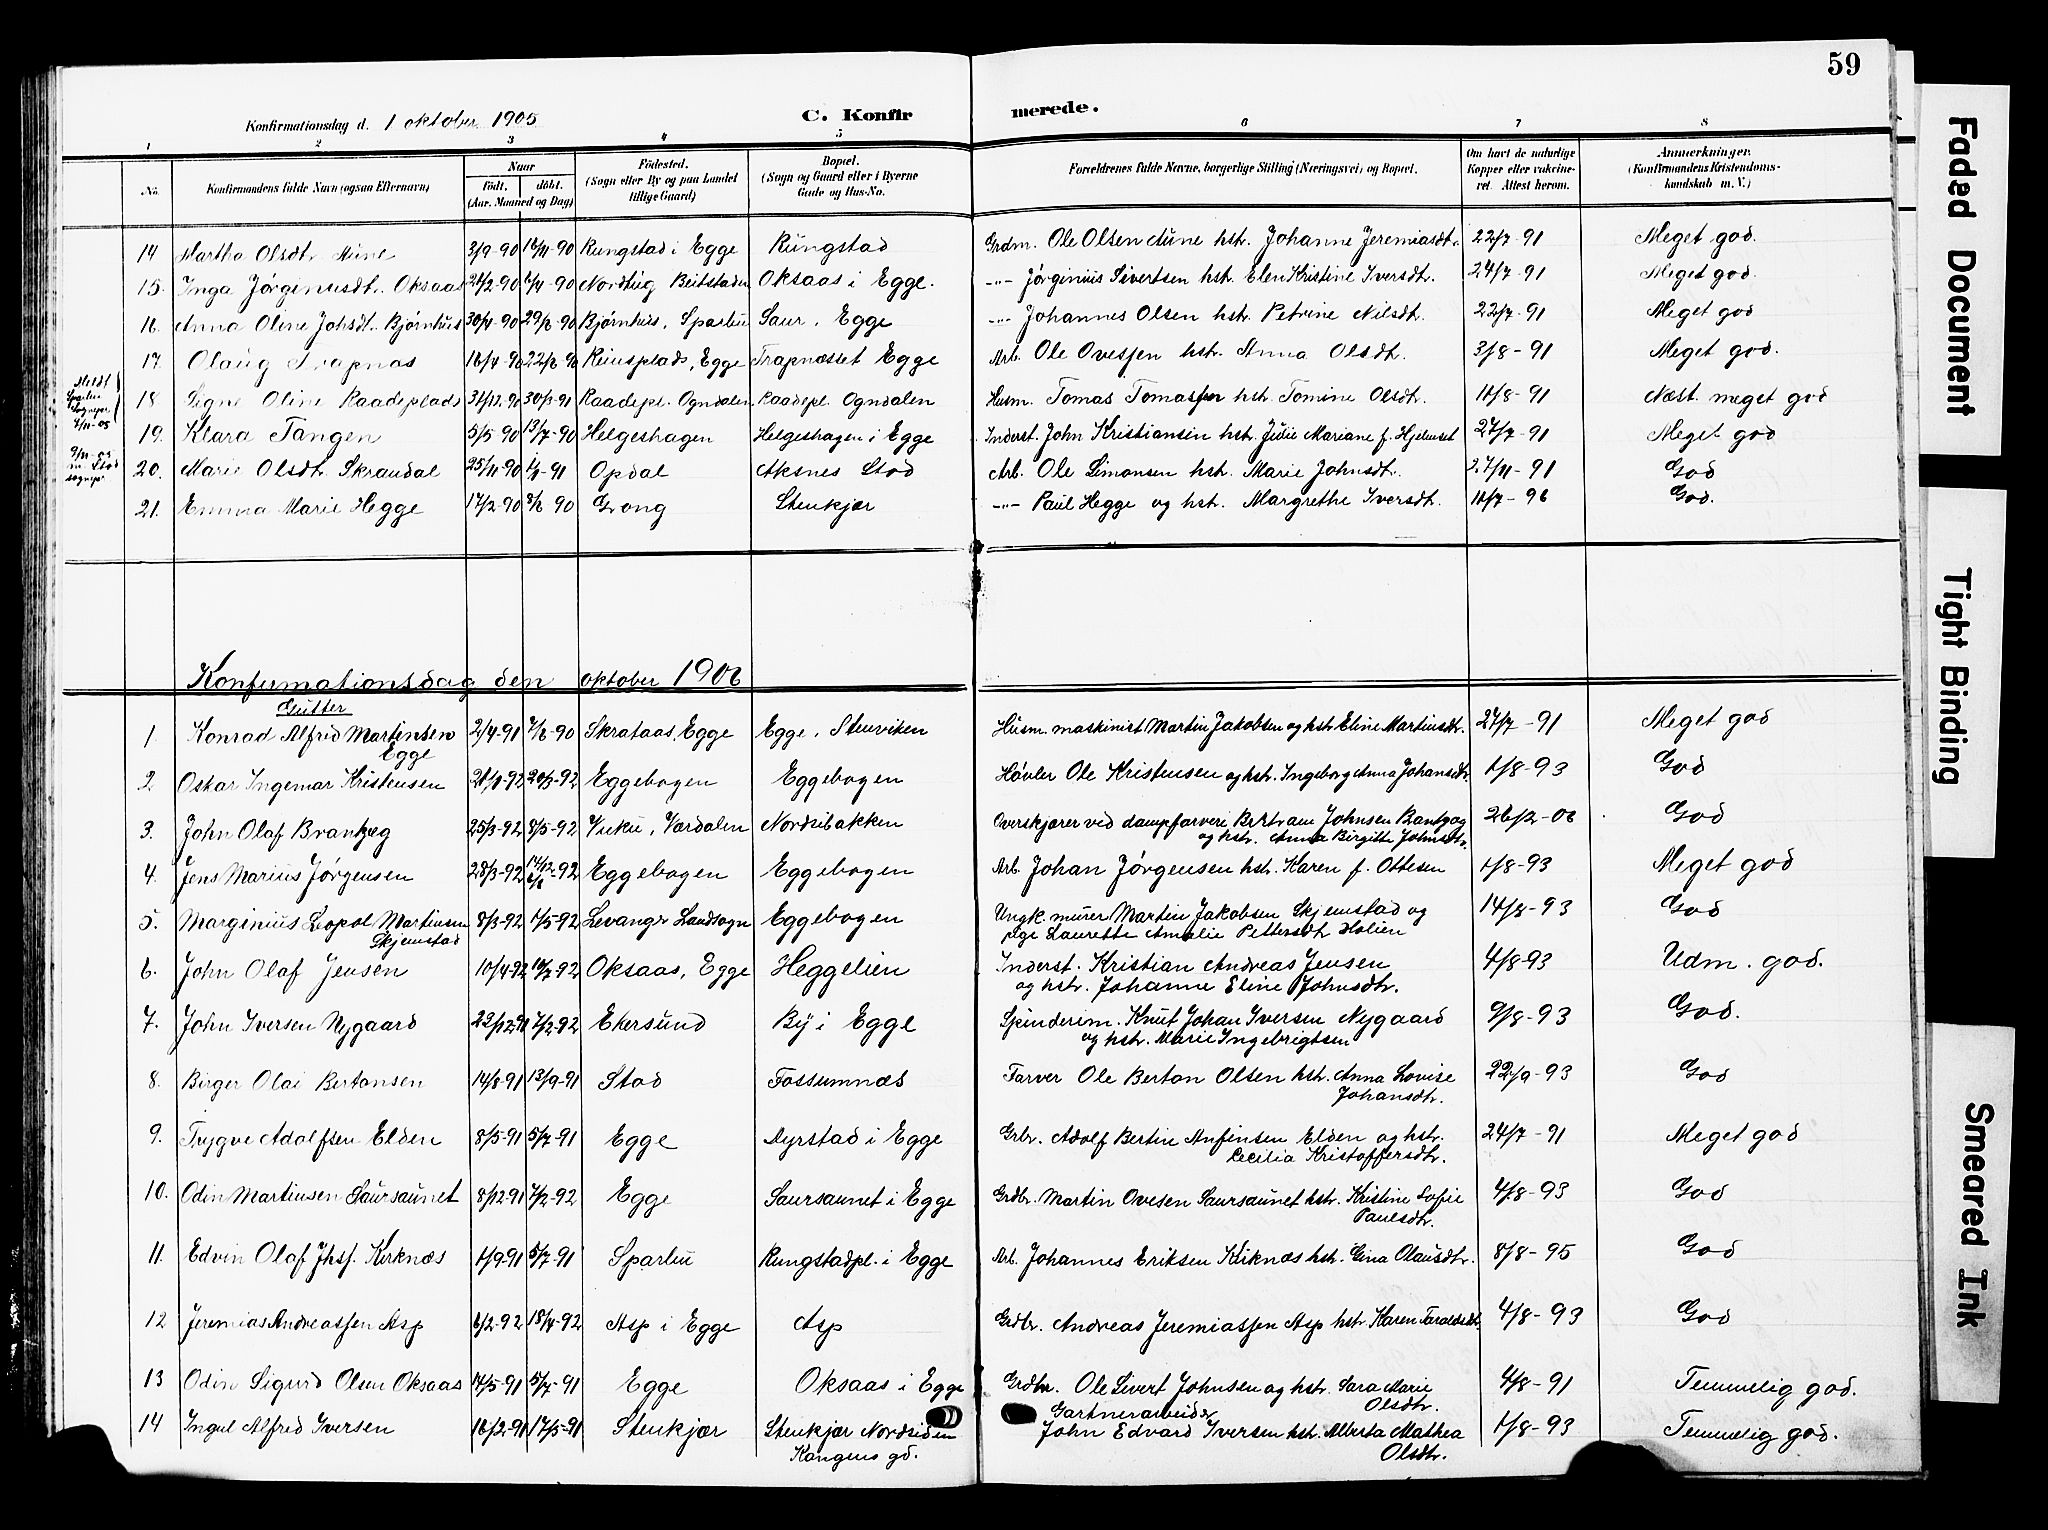 59
Konfirmationsdag d. 1 oktober 1905
C. Konfirmerede.
1 2 3 4 5 6 7 8
No. Konfirmandens fulde Navn (ogsaa Efternavn) Naar født, døbt. (Aar, Maaned og Dag) Fødested. (Sogn eller By og paa Landet tillige Gaard) Bopæl. (Sogn og Gaard eller i Byerne Gade og Hus-No. Forældrenes fulde Navne, borgerlige Stilling (Næringsvei) og Bopæl. Om havt de naturlige Kopper eller vakcineret. Attest herom. Anmerkninger. (Konfirmandens Kristendomskundskab m. V.)
14 Martha Olsdtr. 3/9-90 16/11-90 Rungstad i Egge Rungstad Grdm. Ole Olsen Aune hstr. Johanne Jeremiasdtr. 22/7-91 Meget god.
15. Inga Jørginusdt. Oksaas 21/2-90 6/4-90 Nordtug Beitstaden Oksaas i Egge. -"- Jørginius Sivertsen hstr. Elen Kristine Iversdtr. 24/7-91 Meget god.
16. Anna Oline Johsdt. Bjørnhus 30/4-90 29/6 90 Bjørnhus, Sparbu Saur, Egge -"- Johannes Olsen hstr. Petrine Nilsdtr. 22/7-91 Meget god
17. Olaug Trapnas 16/4-90 22/6 90 Reinsplads, Egge Trapnæsset Egge Arb. Ole Ovesen hstr. Anna Olsdtr. 3/8-91 Meget god.
Meldt Sparbu Sognepr. 2/11-05
18 Signe Oline Raadeplads 31/12-90 30/1-91 Raadepl. Ogndalen Raadepl. Ogndalen Husm. Tomas Tomassen hstr. Tomine Olsdtr. 11/8-91 Næst. meget god
19. Klara Tangen 5/5-90 13/7-90 Helgeshagen Helgeshagen i Egge Inderst. John Kristiansen hstr. Julie Mariane f. 24/7-91 Meget god
9/11-05 m. Stod sognepr
20. Marie Olsdtr. Skraudal 25/11-90 1/1-91 Opdal Aksnes Stod Arb. Ole Simonsen hstr. Marie Johnsdtr. 27/11-91 God
21. Emma Marie Hegge 17/2-90 8/6 90 Grong Stenkjær -"- Paul Hegge og hstr. Margrethe Iversdtr. 11/7-96 God.
Konfirmationsdag den oktober 1906
Gutter
1. Konrad Alfred Martinsen 2/4-91 7/6-90 Skrataas, Egge Egge, Stenviken Husm. maskinist Martin Jakobsen og hstr. Eline Martinsdtr. 27/7-91 Meget god
Egge
2 Oskar Ingemar Kristensen 21/1-92 20/3-92 Eggebogen Eggebogen Høvler Ole Kristensen og hstr. Ingeborg Anna Johansdtr. 1/8-93 God
3. John Olaf Brantzæg 25/3-92 8/5-92 Vuku, Værdalen Nordsibakken Overskjærer ved dampfarveri Bertram Johnsen
og hstr. Anna Birgitte Johnsdtr. 26/2-06 God
4. Jens Marius Jørgensen 28/3-92 14/12 6/6-92 Eggebogen Eggebogen Arb. Johan Jørgensen hstr. Karen f. Ottesen 1/8-93 Meget god
5. Marginius Leopol Martinsen 8/3-92 1/5-92 Levanger Landsogn Eggebogen Ungk. murer Martin Jakobsen Skjemstad og
Skjemstad pige Laurette Amalie Pettersdtr Holien 14/8-93 God
6. John Olaf Jensen 10/4-92 10/7-92 Oksaas, Egge Heggelien Inderst. Kristian Andreas Jensen
og hstr. Johanne Eline Johnsdtr. 4/8-93 Udm. god.
7. John Iversen Nygaard 23/12-91 7/2-92 Ekersund By i Egge Spinderim. Knut Johan Iversen Nygaard
og hstr. Marie Ingebrigtsen 9/8-93 God.
8. Birger Olai Bertansen 14/8-91 13/9-91 Stod Fossumnæs Farver Ole Bertan Olsen hstr. Anna Lovise
Johansdtr. 22/9-93 God
9. Trygve Adolfsen Elden 8/5-91 5/7-91 Egge Dyrstad i Egge Grbr. Adolf Bertin Anfinsen Elden og hstr.
Cecilia Kristoffersdtr. 24/7-91 Meget god
10. Odin Martinsen Saursaunet 8/12-91 7/2-92 Egge Saursaunet i Egge Grdbr. Martin Ovesen Saursaunet hstr. Kristine Sofie
Paulsdtr. 4/8-93 God
11. Edvin Olaf Jhsf. Kirknæs 1/9-91 5/7-91 Sparbu Rungstadpl. i Egge Arb. Johannes Eriksen Kirknæs hstr. Gina Olausdtr. 8/8-95 God
12 Jeremias Andreassen Asp 6/2-92 18/4-92 Asp i Egge Asp Grdbr. Andreas Jeremiassen Asp hstr Karen Taraldsdtr. 4/8-93 God
13 Odin Sigurd Olsen Oksaas 14/5-91 5/7-91 Egge Oksaas i Egge Grdbr. Ole Sivert Johnsen og hstr. Sara Marie
Olsdtr. 4/8-91 Temmelig god.
14 Ingul Alfred Iversen 16/2-91 17/5-91 Stenkjær Stenkjær Nordsiden
Kongens gd.
Gartnerarbeider
John Edvard Iversen hstr. Alberta Mathea
Olsdtr. 1/8-93 Temmelig god.
Faded Document
Tight Binding
Smeared Ink